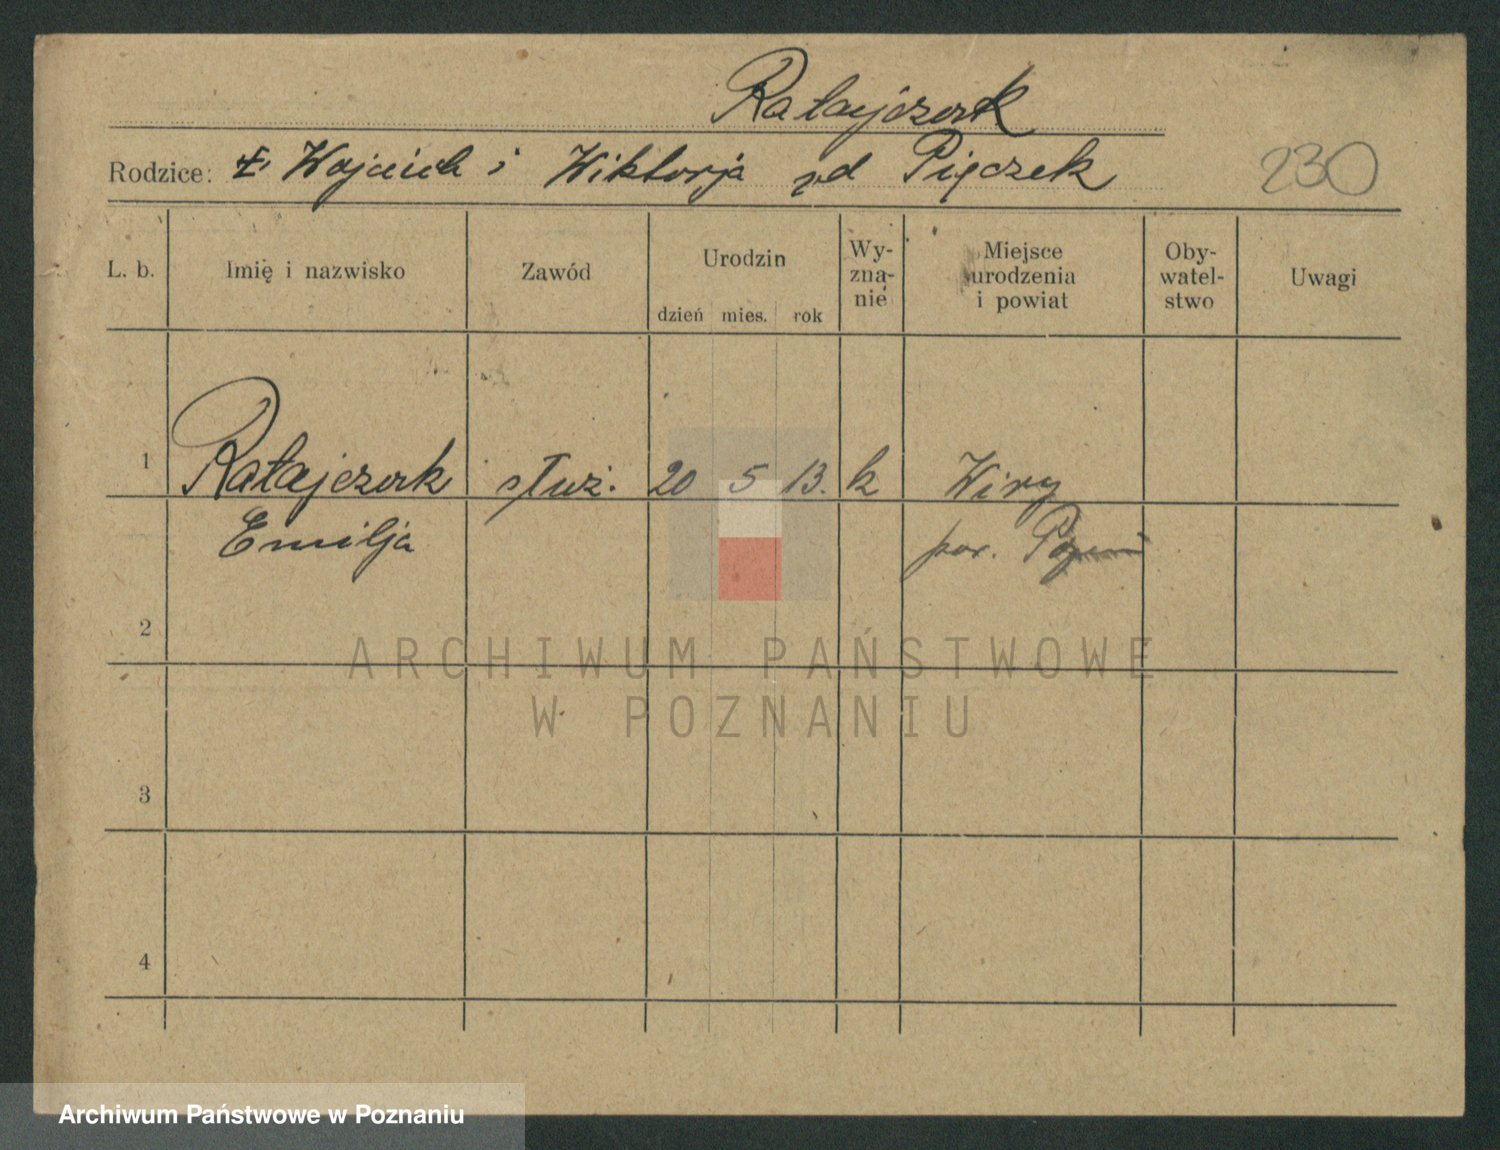 Ratajczak
Rodzice: Ł. Wojciech i Wiktorja zd Pięczek
230
L. b. Imię i nazwisko Zawód Urodzin dzień mies. rok Wy-zna-nie Miejsce urodzenia i powiat Oby-watel-stwo Uwagi
1 Ratajczak służ. 20 5 13. k Wiry
Emilja pow. Poznań
2
ARCHIWUM PAŃSTWOWE
W POZNANIU
3
4
Archiwum Państwowe w Poznaniu